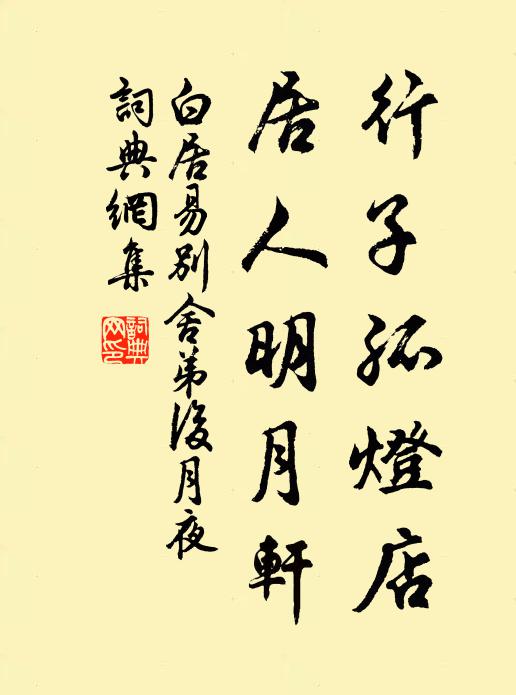 行子孤燈店
居人明月軒
白居易別舍弟後月夜
詞典網集
詞典
网印